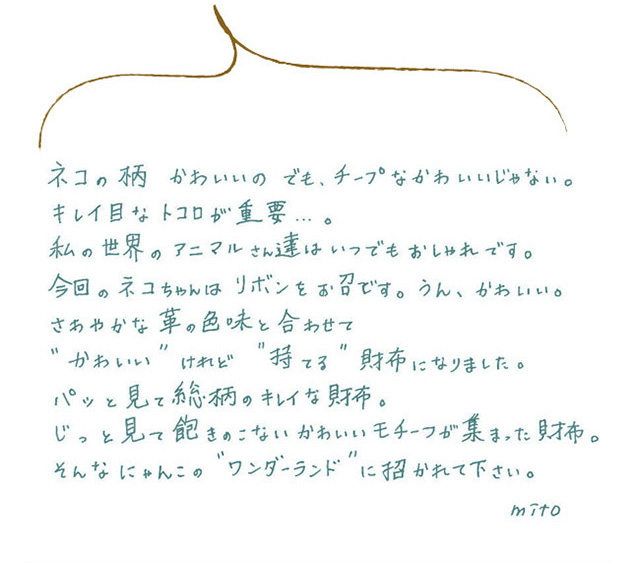 ネコの柄 かわいいの でも、チープなかわいいじゃない。
キレイ目なトコロが重要…。
私の世界のアニマルさん達はいつでもおしゃれです。
今回のネコちゃんはリボンをお召です。うん、かわいい。
さわやかな革の色味と合わせて
"かわいい"けれど "持てる"財布になりました。
パッと見て総柄のキレイな財布。
じっと見て飽きのこないかわいいモチーフが集まった財布。
そんなにゃんこの"ワンダーランド"に招かれて下さい。
mito